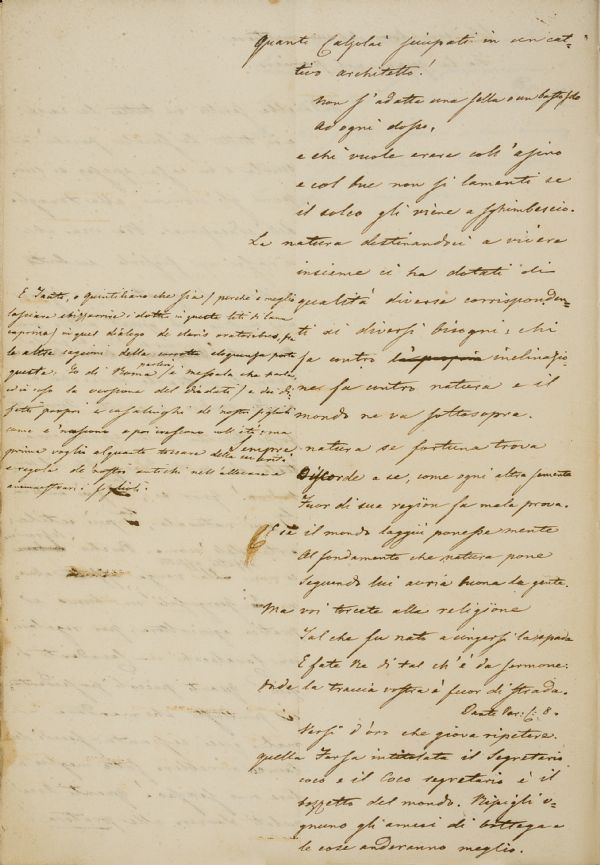 Quanti Calzolai sciupati in un cat-
tivo architetto!
Non s'adatta una sella o un basto solo
ad ogni dosso,
e chi vuole arare coll'asino
e col bue non si lamenti se
il solco gli viene a sghimbescio.
La natura destinandoci a vivere
insieme ci ha dotati di
qualità diverse corrisponden-
ti ai diversi bisogni; chi
fa contro inclinazio-
ne, fa contro natura e il
mondo ne va sottosopra.
Sempre natura se fortuna trova
Discorde a se, come ogni altra semente
Fuor di sua region fa mala prova.
E se il mondo laggiù ponesse mente
Al fondamento che natura pone
Seguendo lui avria buona la gente.
Ma voi torcete alla religione
Tal che fu nato a cingersi la spada
E fate Re di tal ch'è da sermone:
Onde la traccia vostra è fuor di strada.
Dante Par: C. 8.
Versi d'oro che giova ripetere.
quella Farsa intitolata il Segretario
coco e il Coco segretario è il
bozzetto del mondo. Ripigli o-
gnuno gli arnesi di bottega e
le cose anderanno meglio.
E Tacito, o Quintiliano che sia (perchè è meglio
lasciare sbizzarrire i dotti in queste liti di lana
caprina) in quel dialogo de claris oratoribus, fra
le altre cagioni della corrotta eloquenza porta
questa. Io di Roma parlerò
ed io così la versione del
fetti propri e casalinghi de' nostri figlioli
come e' nascono e poi crescono coll'età; ma
prima voglio alquanto toccare della severità
e regola de' nostri antichi nell'allevare e
ammaestrare i figlioli.